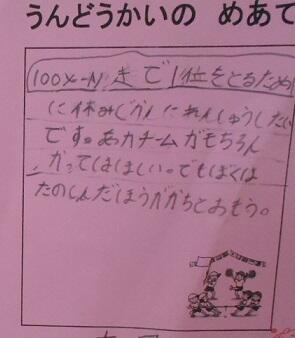 うんどうかいの めあて
100メートル走で1位をとるため
に休みじかんにれんしゅうしたい
です。あカチームがもちろん
かってほしい。でもぼくは
たのしんだほうがかちとおもう。